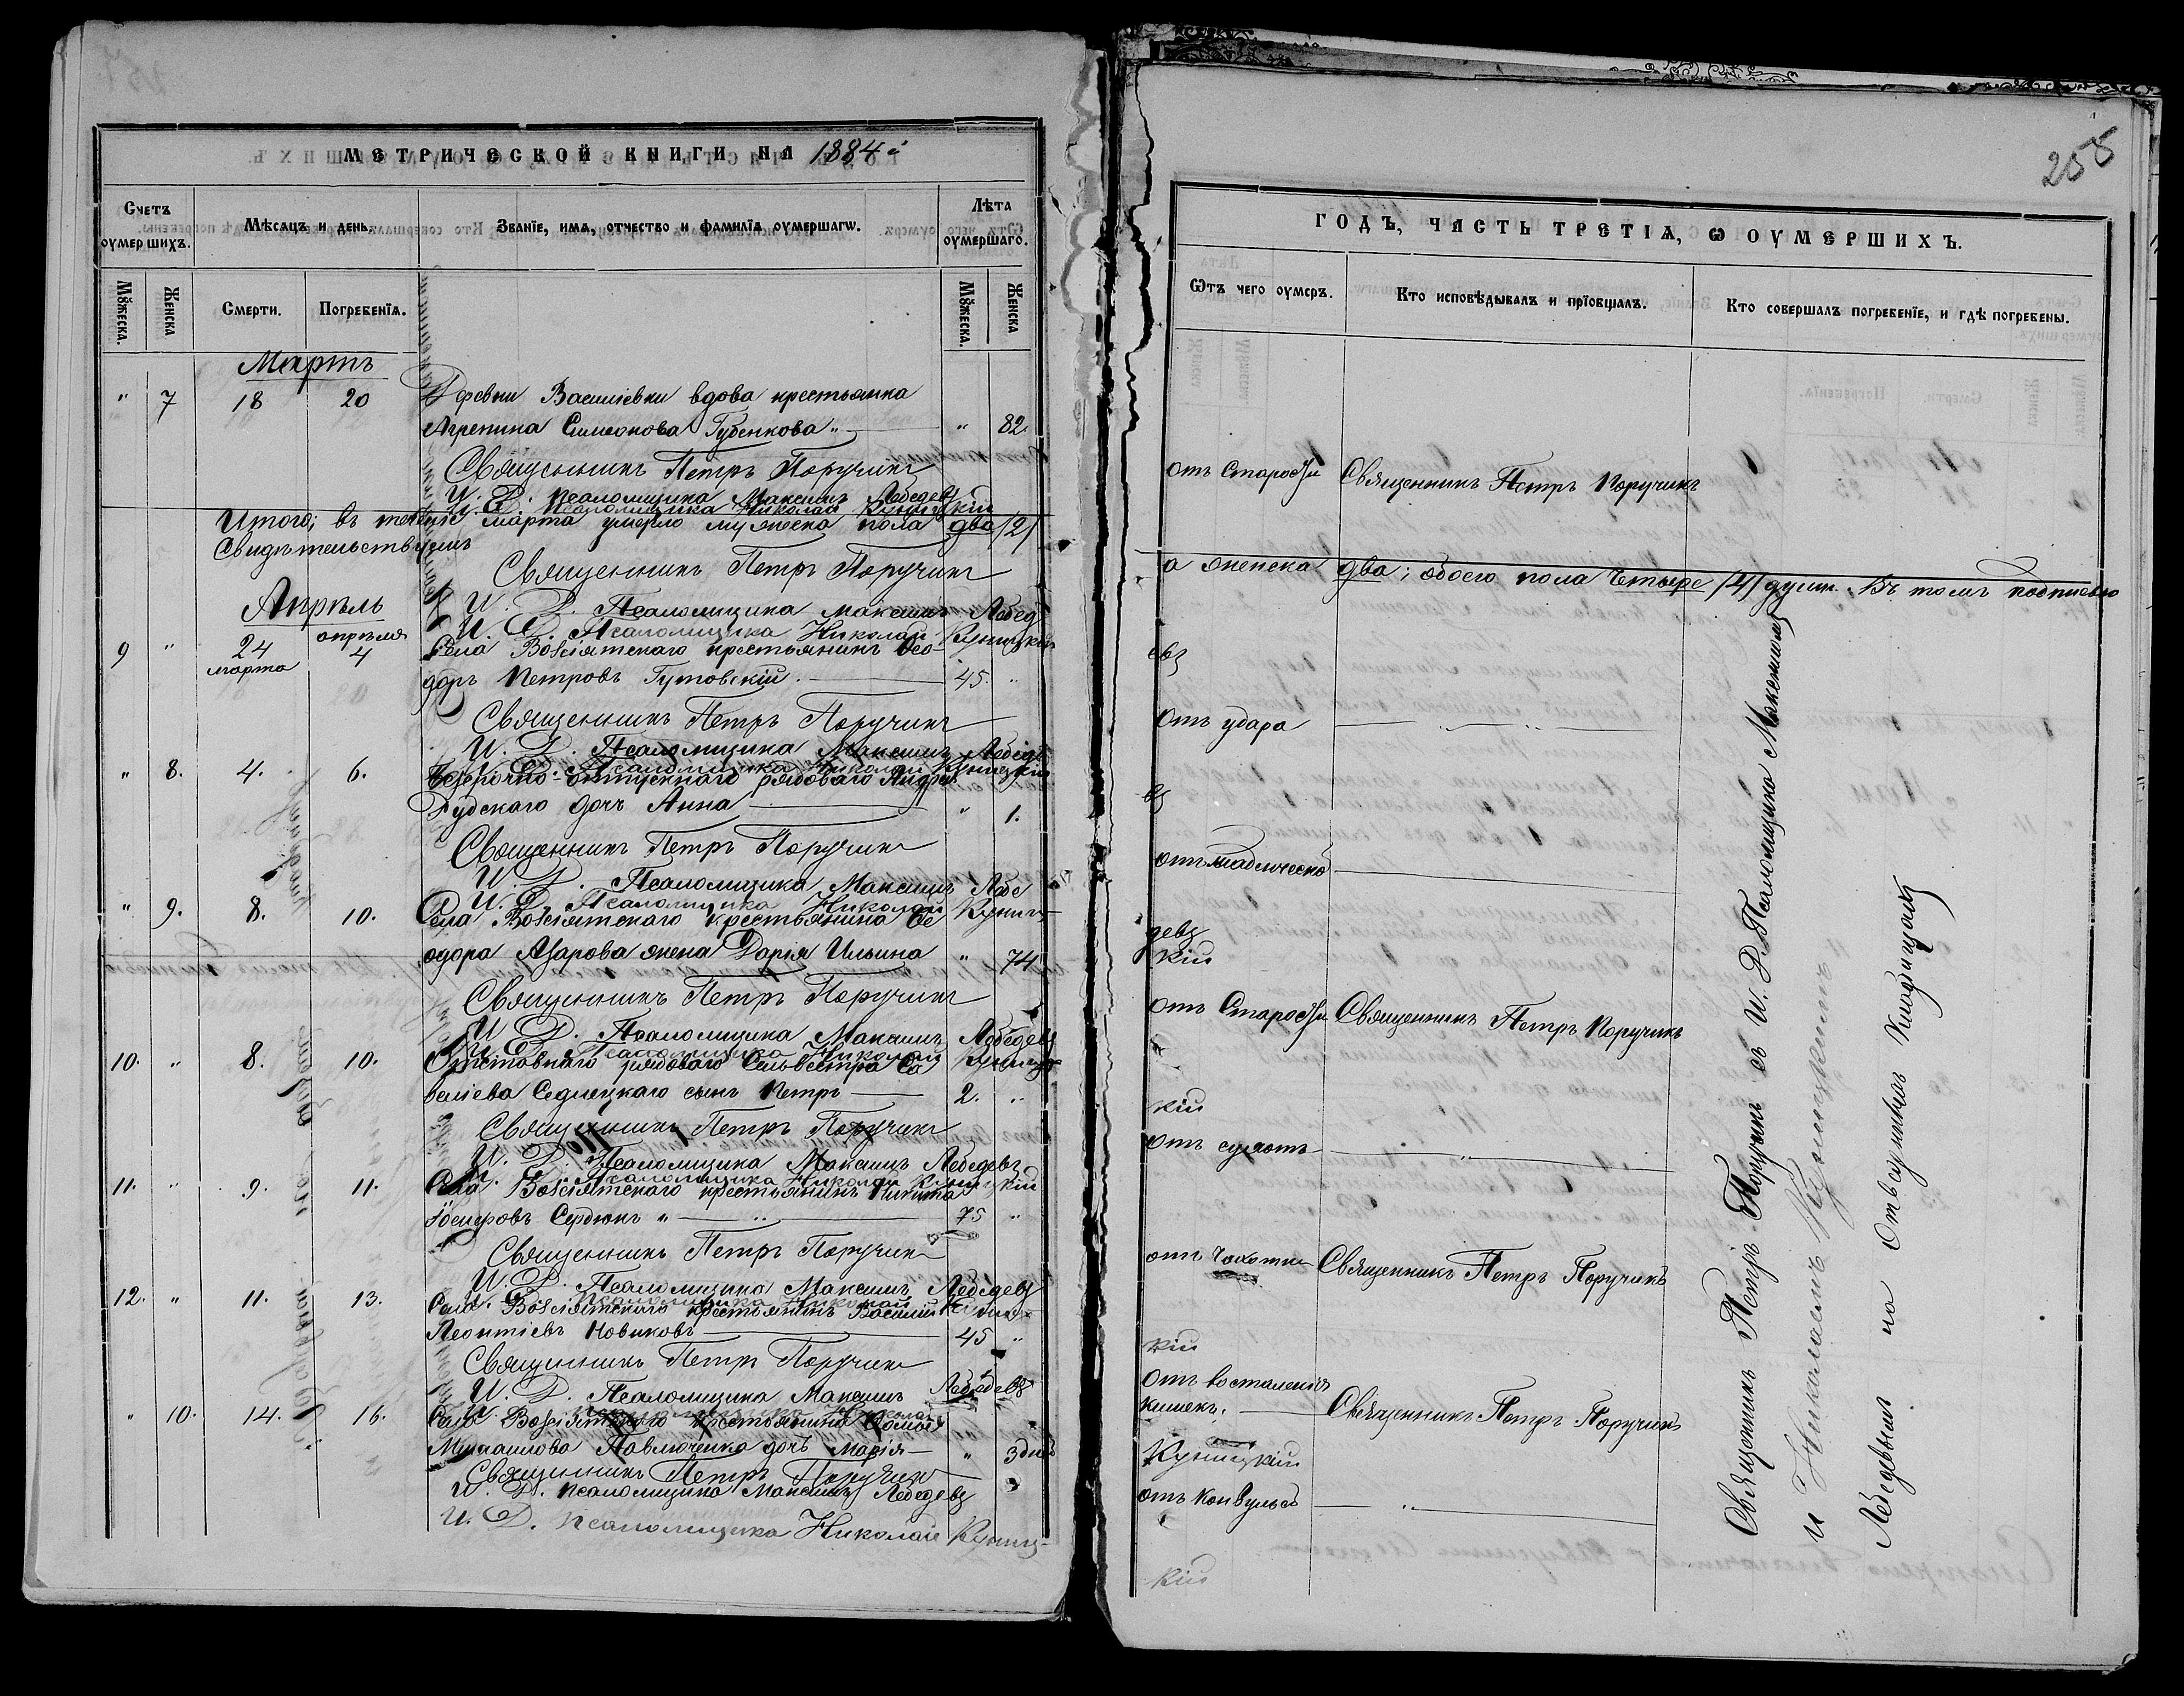 МЕТРИЧЕСКОЙ КНИГИ НА 1884й
Счетъ оумершихъ.
Мѣсяцъ и день.
Званїе, имѧ, отчество и фамилїѧ оумершагѡ.
Лѣта оумершаго.
Мꙋжеска.
Женска
Смерти.
Погребенїѧ.
Мꙋжеска.
Женска
Мартъ
" 7 18 20 Деревни Васильевки вдова крестьянка
Агрепина Симеонова Губенкова " " 82.
Священникъ Петръ Поручикъ
И. Д. Псаломщика Максимъ Лебедевъ
И. Д. Псаломщика Николай Куницкій
Итого; въ марта умерло мужеска пола два /2/
Свидѣтельствуемъ
Священникъ Петръ Поручикъ
Апрѣль
И. Д. Псаломщика Максимъ Лебед
И. Д. Псаломщика Николай Куницкій
9 " 24 марта апрѣля 4 Села Возсіятскаго крестьянинъ Ѳео-
доръ Петровъ Гутовскій. 45. "
Священникъ Петръ Поручикъ
И. Д. Псаломщика Максимъ Лебеде
И. Д. Псаломщика Николай Куницкій
" 8. 4. 6. Безсрочно-отпускнаго рядоваго Андрея
Рудскаго дочь Анна " 1.
Священникъ Петръ Поручикъ
И. Д. Псаломщика Максимъ Лебе
И. Д. Псаломщика Николай Куниц-
" 9. 8. 10. Села Возсіятскаго крестьянина Ѳе
одора Азарова жена Дарія Ильина " 74
Священникъ Петръ Поручикъ
И. Д. Псаломщика Максимъ Лебедевъ
И. Д. Псаломщика Николай Куниц
10. " 8. 10. Отставнаго рядоваго Сельвестра Са
веліева Седлецкаго сынъ Петръ 2. "
Священникъ Петръ Поручикъ
И. Д. Псаломщика Максимъ Лебедевъ
И. Д. Псаломщика Николай Куницкій
11. " 9. 11. Села Возсіятскаго крестьянинъ Никита
Сердюкъ " 75 "
Священникъ Петръ Поручикъ
И. Д. Псаломщика Максимъ Лебедевъ
И. Д. Псаломщика Николай Куниц-
12. " 11. 13. Села Возсіятскаго крестьянинъ Василій
Леонтіевъ Новиковъ 45 "
Священникъ Петръ Поручикъ
И. Д. Псаломщика Максимъ Лебедевъ
" 10. 14. 16. Села Возсіятскаго крестьянина
Михаилова Павлюченка дочь Марія " 3 дн
Священникъ Петръ Поручикъ
И. Д. Псаломщика Максимъ Лебедевъ
И. Д. Псаломщика Николай Куниц-
258
ГОДЪ, ЧАСТЬ ТРЕТІѦ, Ѡ ОУМЕРШИХЪ.
Ѿтъ чего оумеръ.
Кто исповѣдывалъ и прїобщалъ.
Кто совершалъ погребенїе, и гдѣ погребены.
отъ Старости Священникъ Петръ Поручикъ
а женска два; обоего пола Четыре /4/ душъ. Въ томъ подписью
евъ
Отъ удара "
въ
отъ младенческ
девъ
кій
отъ Старости Священникъ Петръ Поручикъ
кій
отъ сухотъ "
отъ Чахотки Священникъ Петръ Поручикъ
кій
Отъ воспаленія
кишекъ. Священникъ Петръ Поручикъ
Куницкій
отъ Конвульсі "
кій
Священникъ Петръ Поручикъ съ И. Д. Псаломщика Максимомъ
и Николаемъ Куницкимъ
Лебедевымъ на Кладбищѣ